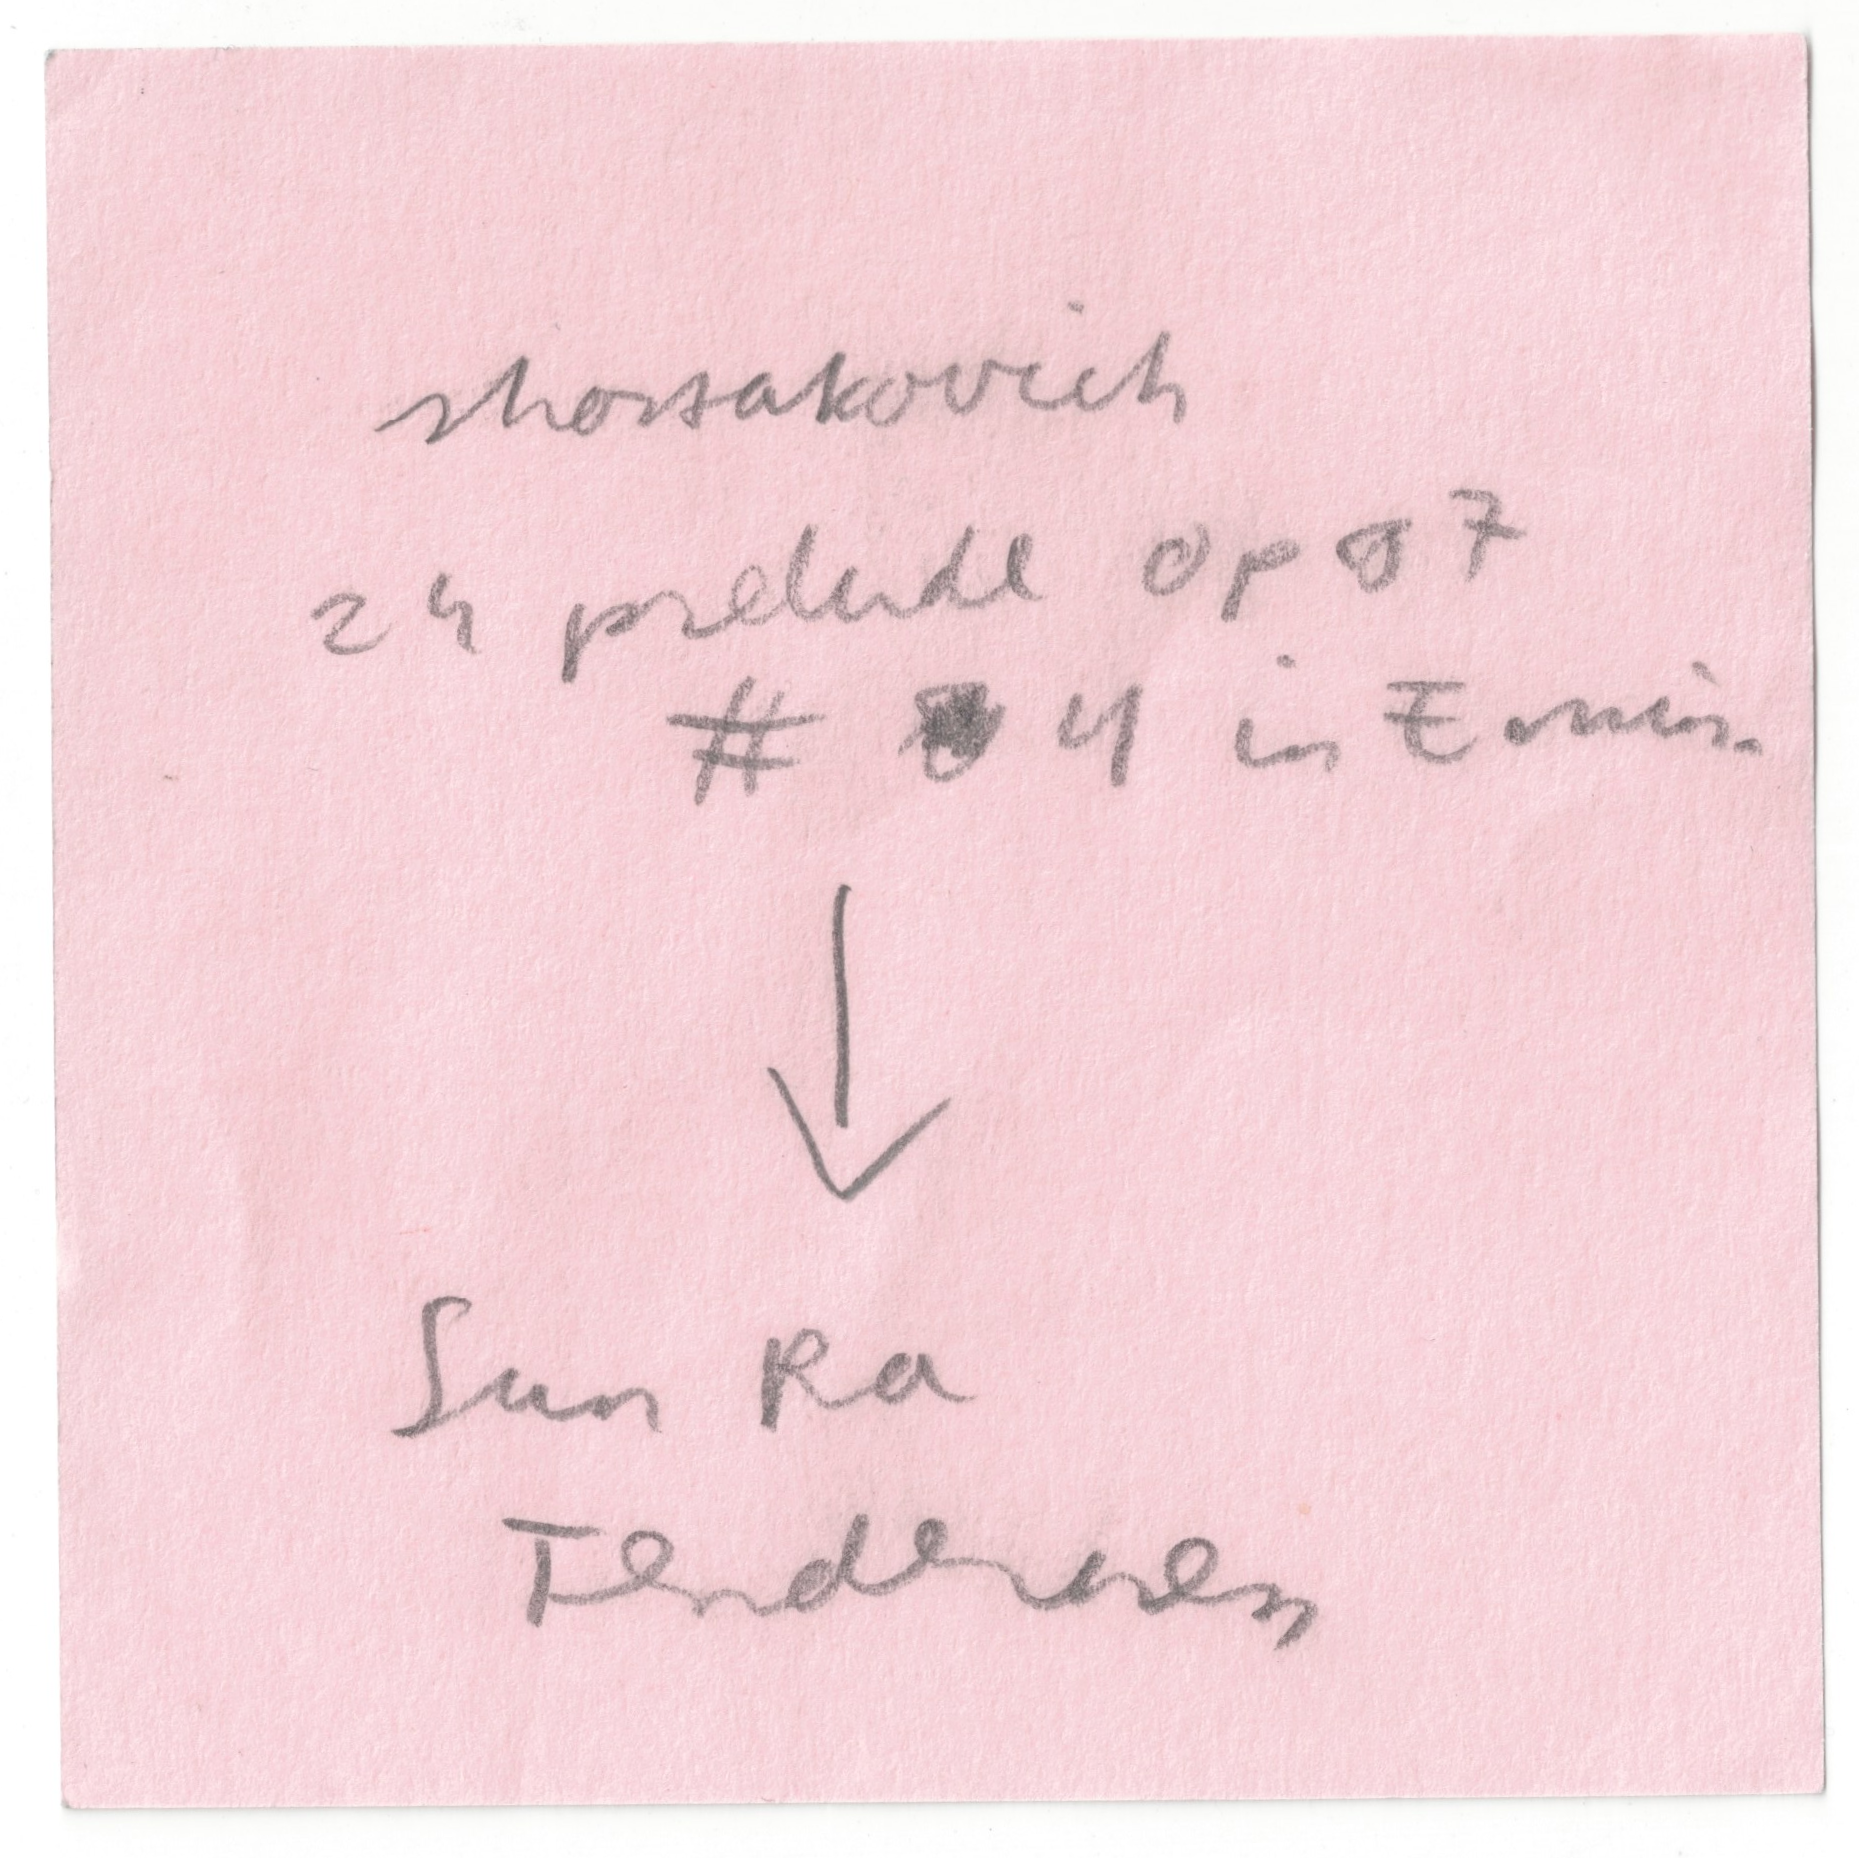 shostakovich
24 prelude op 87
# 4 in E min.
↓
Sun Ra
Tenderness